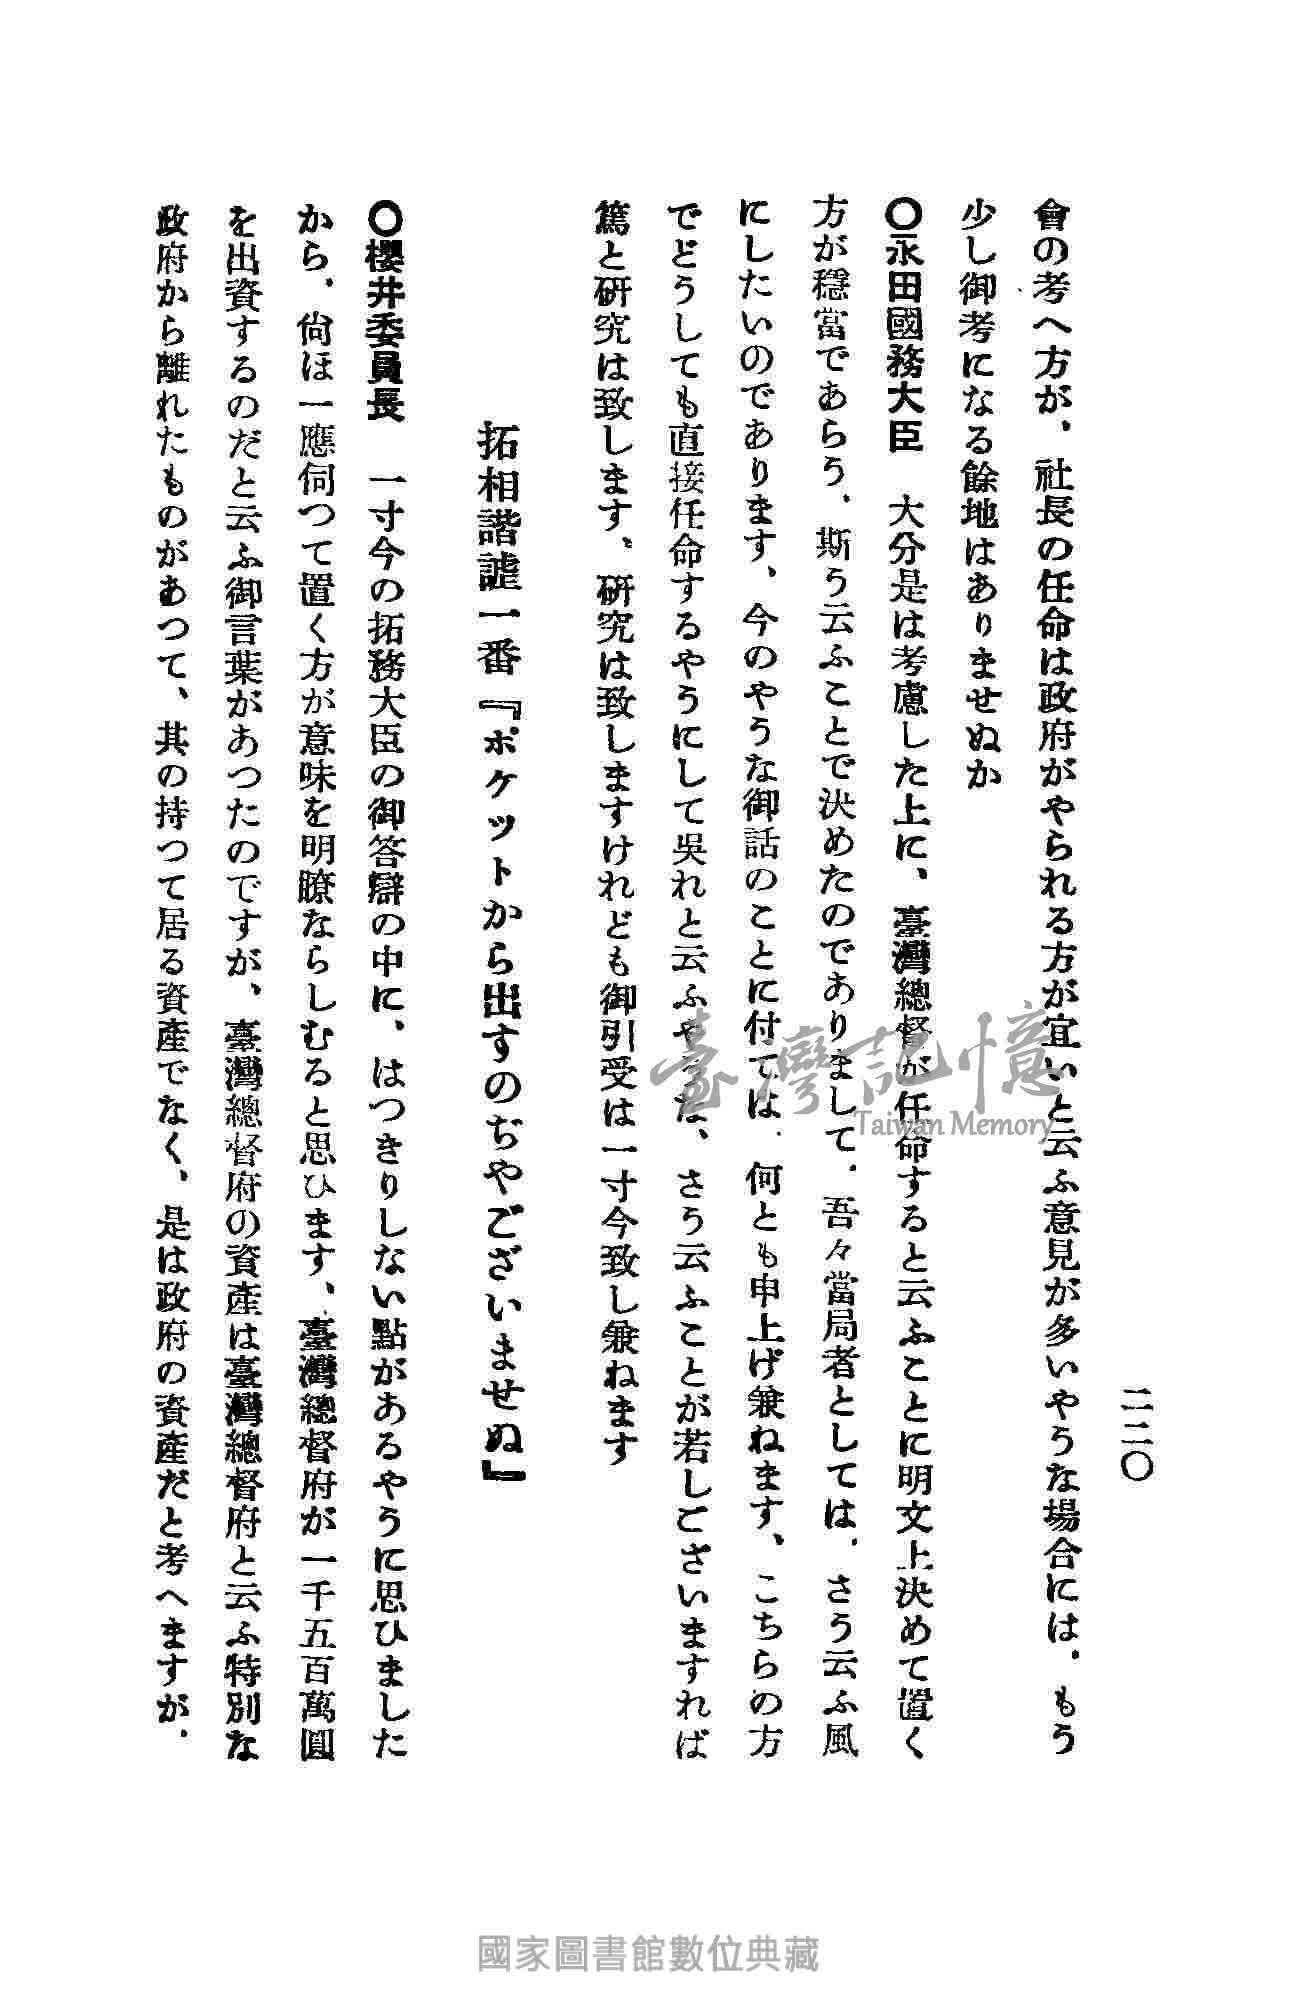 二二〇
會の考へ方が、社長の任命は政府がやられる方が宜いと云ふ意見が多いやうな場合には、もう
少し御考になる餘地はありませぬか
〇永田國務大臣　大分是は考慮した上に、臺灣總督が任命すると云ふことに明文上決めて置く
方が穩當であらう、斯う云ふことで決めたのでありまして、吾々當局者としては、さう云ふ風
にしたいのであります、今のやうな御話のことに付ては、何とも申上げ兼ねます、こちらの方
でどうしても直接任命するやうにして吳れと云ふやうな、さう云ふことが若しございますれば
篤と硏究は致します、硏究は致しますけれども御引受は一寸今致し兼ねます
拓相諧謔一番『ポケットから出すのぢやございませぬ』
〇櫻井委員長　一寸今の拓務大臣の御答辯の中に、はつきりしない點があるやうに思ひました
から、尙ほ一應伺つて置く方が意味を明瞭ならしむると思ひます、臺灣總督府が一千五百萬圓
を出資するのだと云ふ御言葉があつたのですが、臺灣總督府の資產は臺灣總督府と云ふ特別な
政府から離れたものがあつて、其の持つて居る資產でなく、是は政府の資產だと考へますが、
臺灣記憶
Taiwan Memory
國家圖書館數位典藏